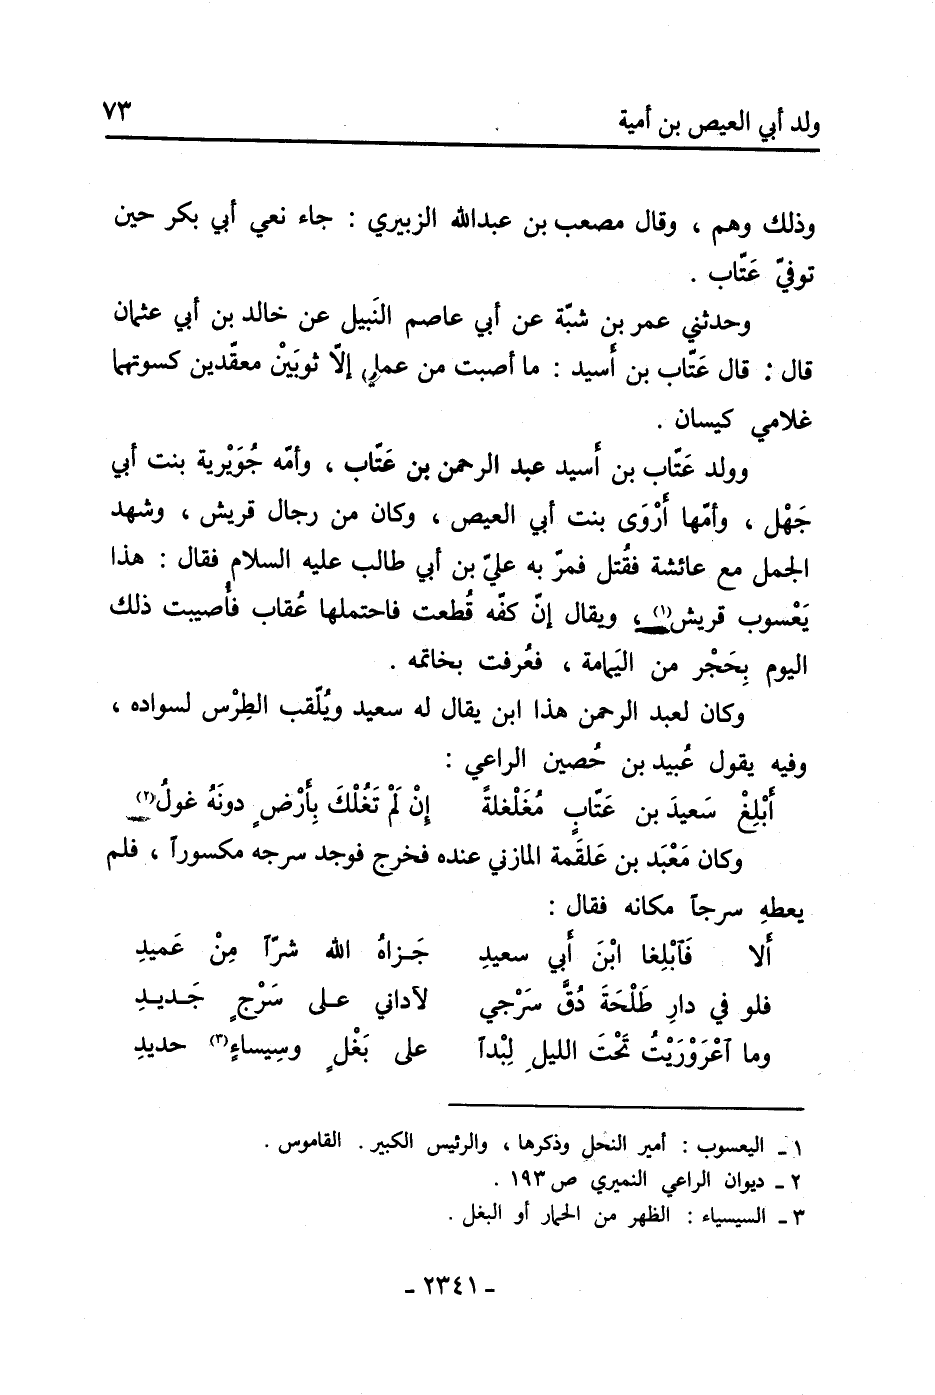 ولد أبي العيص بن أمية ٧٣
وذلك وهم ، وقال مصعب بن عبدالله الزبيري : جاء نعي أبي بكر حين
توفيّ عَتّاب .
وحدثني عمر بن شبّة عن أبي عاصم النَبيل عن خالد بن أبي عثمان
قال : قال عَتّاب بن أَسيد : ما أصبت من عملي إلّا ثوبَيْن معقّدين كسوتهما
غلامي كيسان .
وولد عَتّاب بن أَسيد عبد الرحمن بن عَتّاب ، وأمّه جُوَيْرية بنت أبي
جَهْل ، وأمّها أَرْوَى بنت أبي العيص ، وكان من رجال قريش ، وشهد
الجمل مع عائشة فقُتل فمرّ به عليّ بن أبي طالب عليه السلام فقال : هذا
يَعْسوب قريش(١) ، ويقال إنّ كفّه قُطعت فاحتملها عُقاب فأُصيبت ذلك
اليوم بِحَجْر من اليَمامة ، فعُرفت بخاتمه .
وكان لعبد الرحمن هذا ابن يقال له سعيد ويُلّقب الطِرْس لسواده ،
وفيه يقول عُبيد بن حُصين الراعي :
أَبْلِغْ سَعيدَ بن عَتّابٍ مُغَلْغلةً إِنْ لَمْ تَغُلْكَ بِأَرْضٍ دونَهُ غولُ(٢)
وكان مَعْبَد بن عَلقَمة المازني عنده فخرج فوجد سرجه مكسوراً ، فلم
يعطهِ سرجاً مكانه فقال :
أَلا فَآبْلِغا ابْنَ أَبي سعيدِ جَزاهُ الله شرّاً مِنْ عَميدِ
فلو في دارِ طَلْحَةَ دُقَّ سَرْجي لآداني على سَرْجٍ جَديدِ
وما آعْرَوْرَيْتُ تَحْتَ الليلِ لِبْداً على بَغْلٍ وسِيساءٍ(٣) حديدِ
١ ـ اليعسوب : أمير النحل وذكرها ، والرئيس الكبير . القاموس .
٢ ـ ديوان الراعي النميري ص ١٩٣ .
٣ ـ السيسياء : الظهر من الحمار أو البغل .
- ٢٣٤١ -